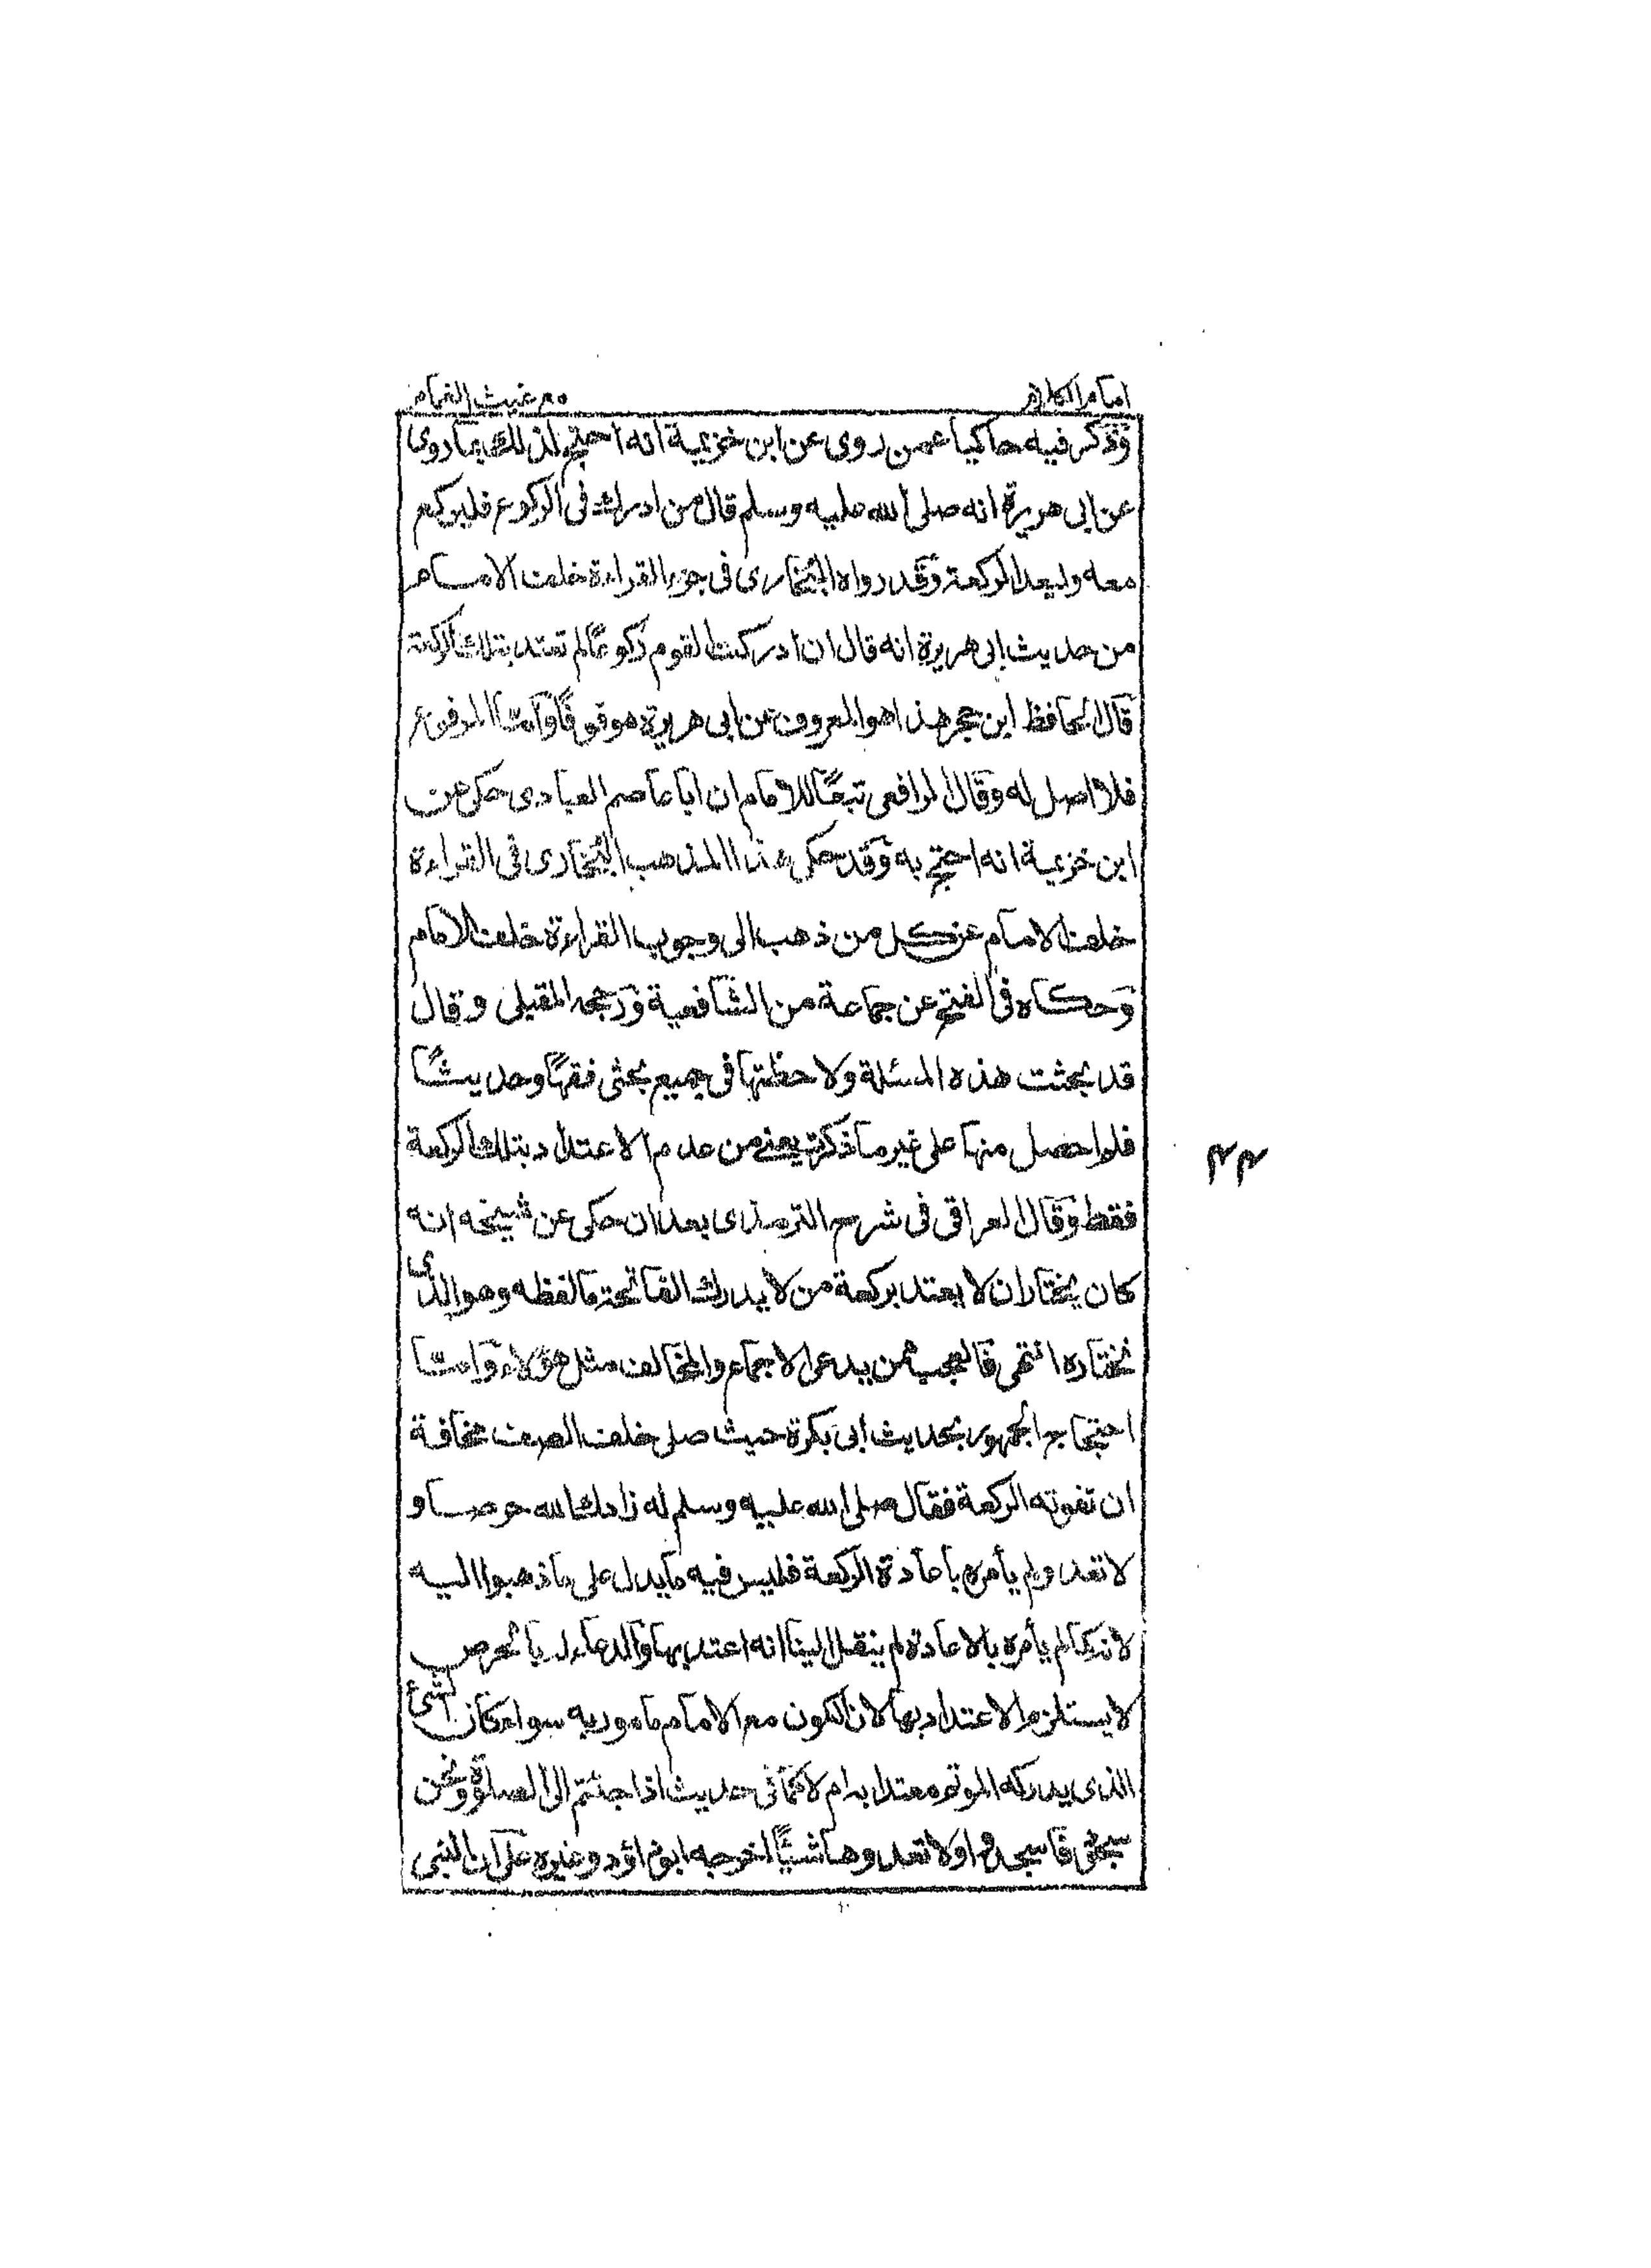 امام الكلام
مع غيث الغمام
وذكر فيه حاكيا عمن روى عن ابن خزيمة انه احتج لذلك بما روى
عن ابى هريرة انه صلى الله عليه وسلم قال من ادرك فى الركوع فليركع
معه وليعد الركعة وقد رواه البخارى فى جزء القراءة خلف الامام
من حديث ابى هريرة انه قال ان ادركت القوم ركوعًا لم تعتد بتلك الركعة
قال الحافظ ابن حجر هذا هو المعروف عن ابى هريرة موقوفًا وامّا المرفوع
فلا اصل له وقال الرافعى تبعًا للامام ان ابا عاصم العبادى حكى عن
ابن خزيمة انه احتج به وقد حكى هذا المذهب البخارى فى القراءة
خلف الامام عن كل من ذهب الى وجوب القراءة خلف الامام
وحكاه فى الفتح عن جماعة من الشافعية ورجحه المقبلى وقال
قد بحثت هذه المسئلة ولاحظتها فى جميع بحثى فقهًا وحديثًا
فلم احصل منها على غير ما ذكرته يعنے من عدم الاعتداد بتلك الركعة
فقط وقال العراقى فى شرح الترمذى بعد ان حكى عن شيخه انه
كان يختار ان لا يعتد بركعة من لا يدرك الفاتحة ما لفظه وهو الذى
نختاره انتهى فالعجب ممن يدعى الاجماع والمخالف مثل هؤلاء وامّا
احتجاج الجمهور بحديث ابى بكرة حيث صلى خلف الصف مخافة
ان تفوته الركعة فقال صلى الله عليه وسلم له زادك الله حرصا و
لا تعد ولم يأمره باعادة الركعة فليس فيه ما يدل على ما ذهبوا اليه
لانه كما لم يأمره بالاعادة لم ينقل الينا انه اعتد بها والدعاء له بالحرص
لا يستلزم الاعتداد بها لان الكون مع الامام مامور به سواء كان الشئ
الذى يدركه الموتم معتدا به ام لا كما فى حديث اذا جئتم الى الصلوة ونحن
سجود فاسجدوا ولا تعدوها شيئًا اخرجه ابو داؤد وغيره على ان النبى
۴۴